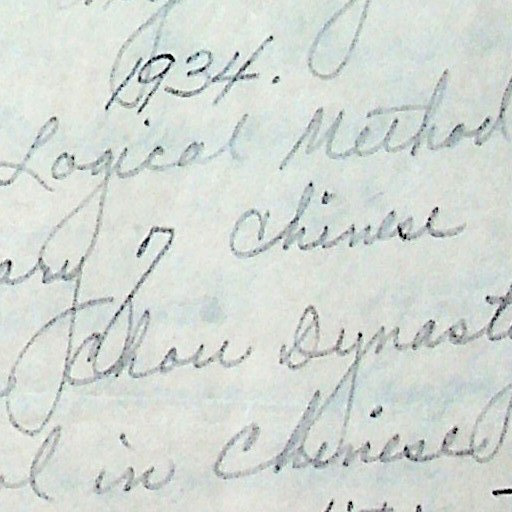 1934.
Logical Method
ary of Chinese
Chou Dynasty
in Chinese